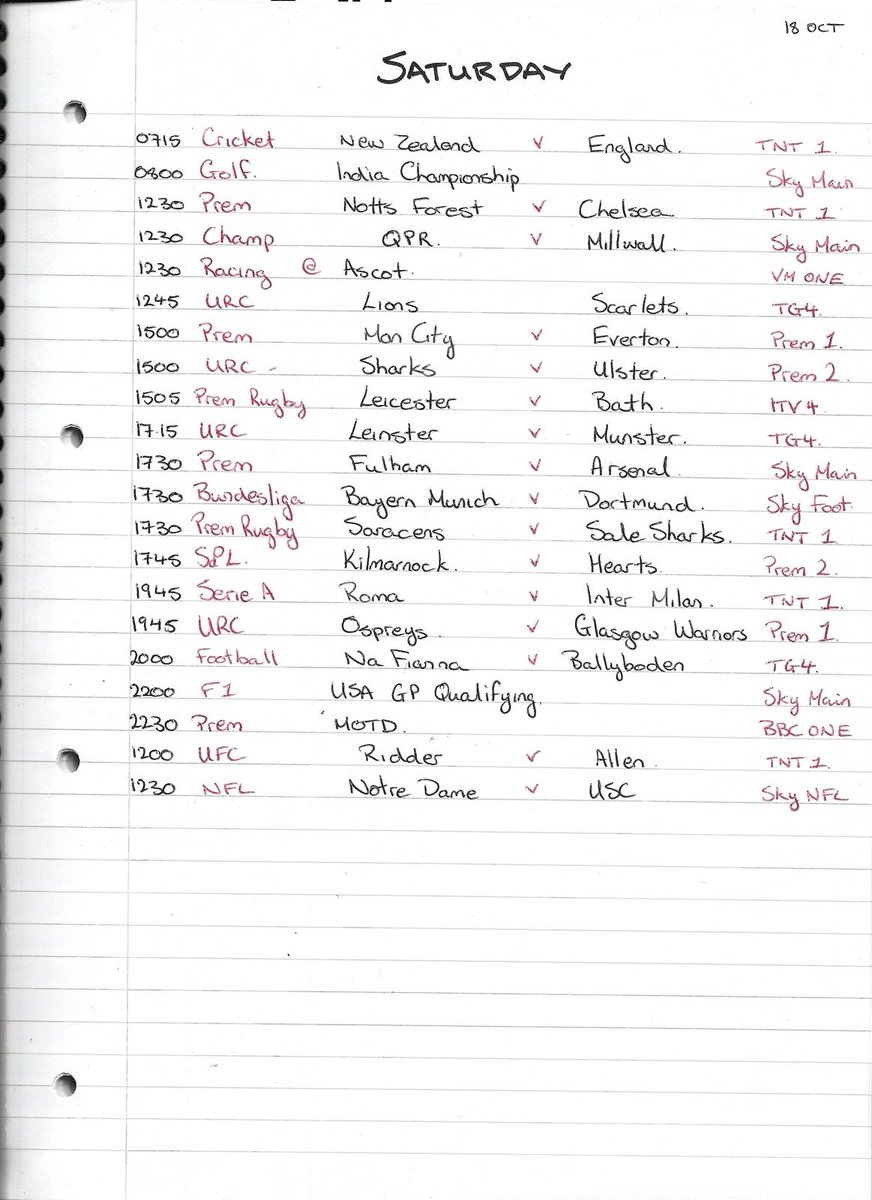 18 OCT
SATURDAY
0715 Cricket New Zealand v England. TNT 1.
0800 Golf. India Championship Sky Main
1230 Prem Notts Forest v Chelsea TNT 1
1230 Champ QPR. v Millwall. Sky Main
1230 Racing @ Ascot. VM ONE
1245 URC Lions Scarlets. TG4.
1500 Prem Man City v Everton. Prem 1.
1500 URC - Sharks v Ulster. Prem 2.
1505 Prem Rugby Leicester v Bath. ITV 4.
1715 URC Leinster v Munster. TG4.
1730 Prem Fulham v Arsenal. Sky Main
1730 Bundesliga Bayern Munich v Dortmund. Sky Foot.
1730 Prem Rugby Saracens v Sale Sharks. TNT 1
1745 SPL. Kilmarnock. v Hearts. Prem 2.
1945 Serie A Roma v Inter Milan. TNT 1.
1945 URC Ospreys. v Glasgow Warriors Prem 1.
2000 Football Na Fianna v Ballyboden TG4.
2200 F1 USA GP Qualifying. Sky Main
2230 Prem MOTD. BBC ONE
1200 UFC Ridder v Allen. TNT 1.
1230 NFL Notre Dame v USC Sky NFL